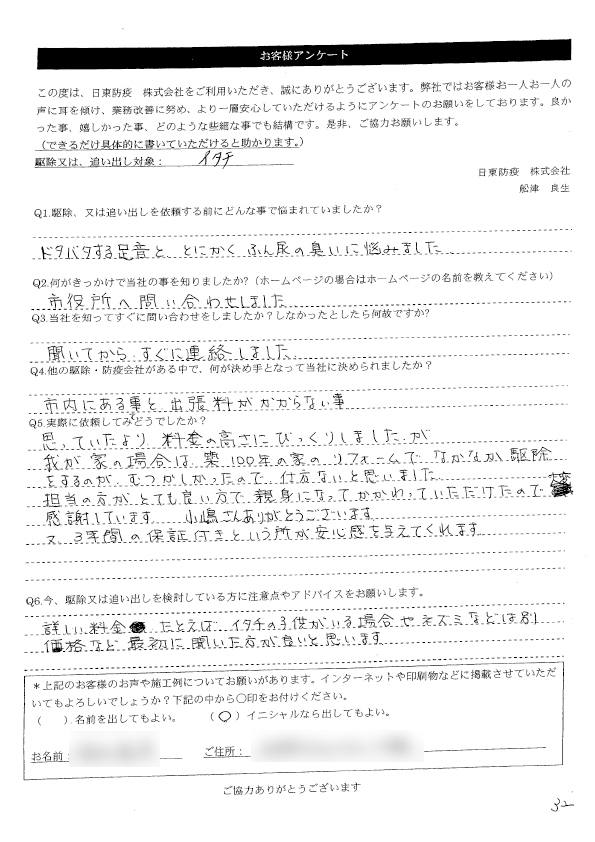 お客様アンケート
この度は、日東防疫 株式会社をご利用いただき、誠にありがとうございます。弊社ではお客様お一人お一人の
声に耳を傾け、業務改善に努め、より一層安心していただけるようにアンケートのお願いをしております。良か
った事、嬉しかった事、どのような些細な事でも結構です。是非、ご協力お願いします。
(できるだけ具体的に書いていただけると助かります。)
駆除又は、追い出し対象: イタチ
日東防疫 株式会社
舩津 良生
Q1.駆除、又は追い出しを依頼する前にどんな事で悩まれていましたか?
ドタバタする足音と とにかく ふん尿の臭いに悩みました
Q2.何がきっかけで当社の事を知りましたか?(ホームページの場合はホームページの名前を教えてください)
市役所へ問い合わせしました
Q3.当社を知ってすぐに問い合わせをしましたか?しなかったとしたら何故ですか?
聞いてから すぐに連絡しました
Q4.他の駆除・防疫会社がある中で、何が決め手となって当社に決められましたか?
市内にある事と 出張料がかからない事
Q5.実際に依頼してみてどうでしたか?
思っていたより 料金の高さにびっくりしましたが
我が家の場合は 築100年の家のリフォームで なかなか駆除
をするのが むつかしかったので 仕方ないと思いました
担当の方が とても良い方で 親身になって かかわっていただけたので 大変
感謝しています 小嶋さんありがとうございます
又 3年間の保証付きという所が安心感を与えてくれます
Q6.今、駆除又は追い出しを検討している方に注意点やアドバイスをお願いします。
詳しい料金 たとえば イタチの子供がいる場合や ネズミなどは別
価格など 最初に聞いた方が良いと思います
*上記のお客様のお声や施工例についてお願いがあります。インターネットや印刷物などに掲載させていただ
いてもよろしいでしょうか?下記の中から○印をお付けください。
( )名前を出してもよい。 (○)イニシャルなら出してもよい。
お名前: ご住所:
ご協力ありがとうございます
32